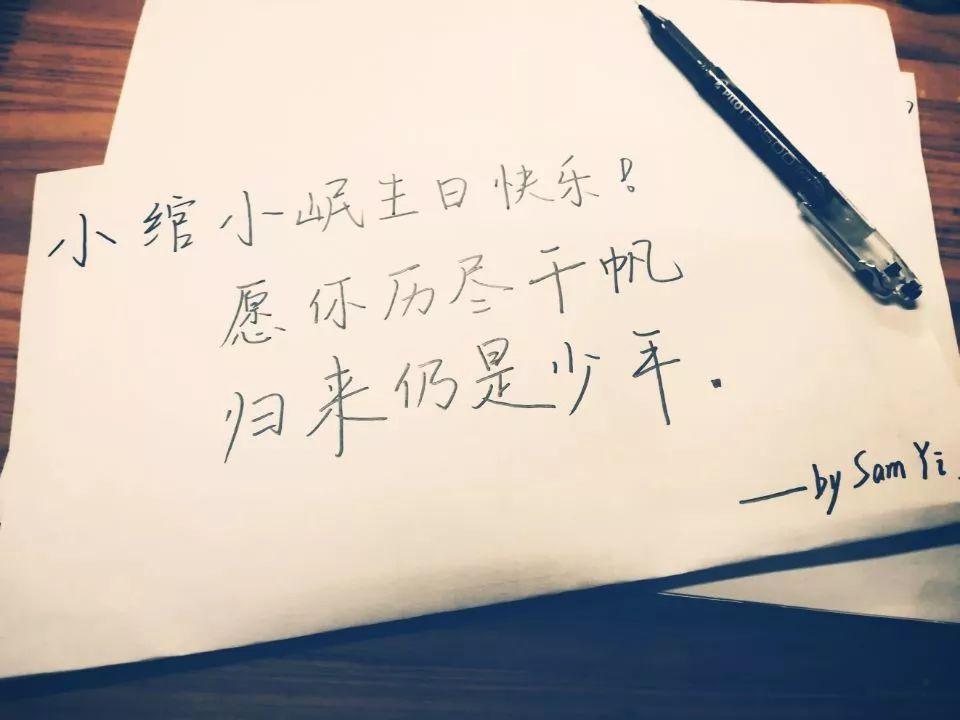 小绾小岷生日快乐!
愿你历尽千帆
归来仍是少年.
——by Sam Yi
PILOT P-500